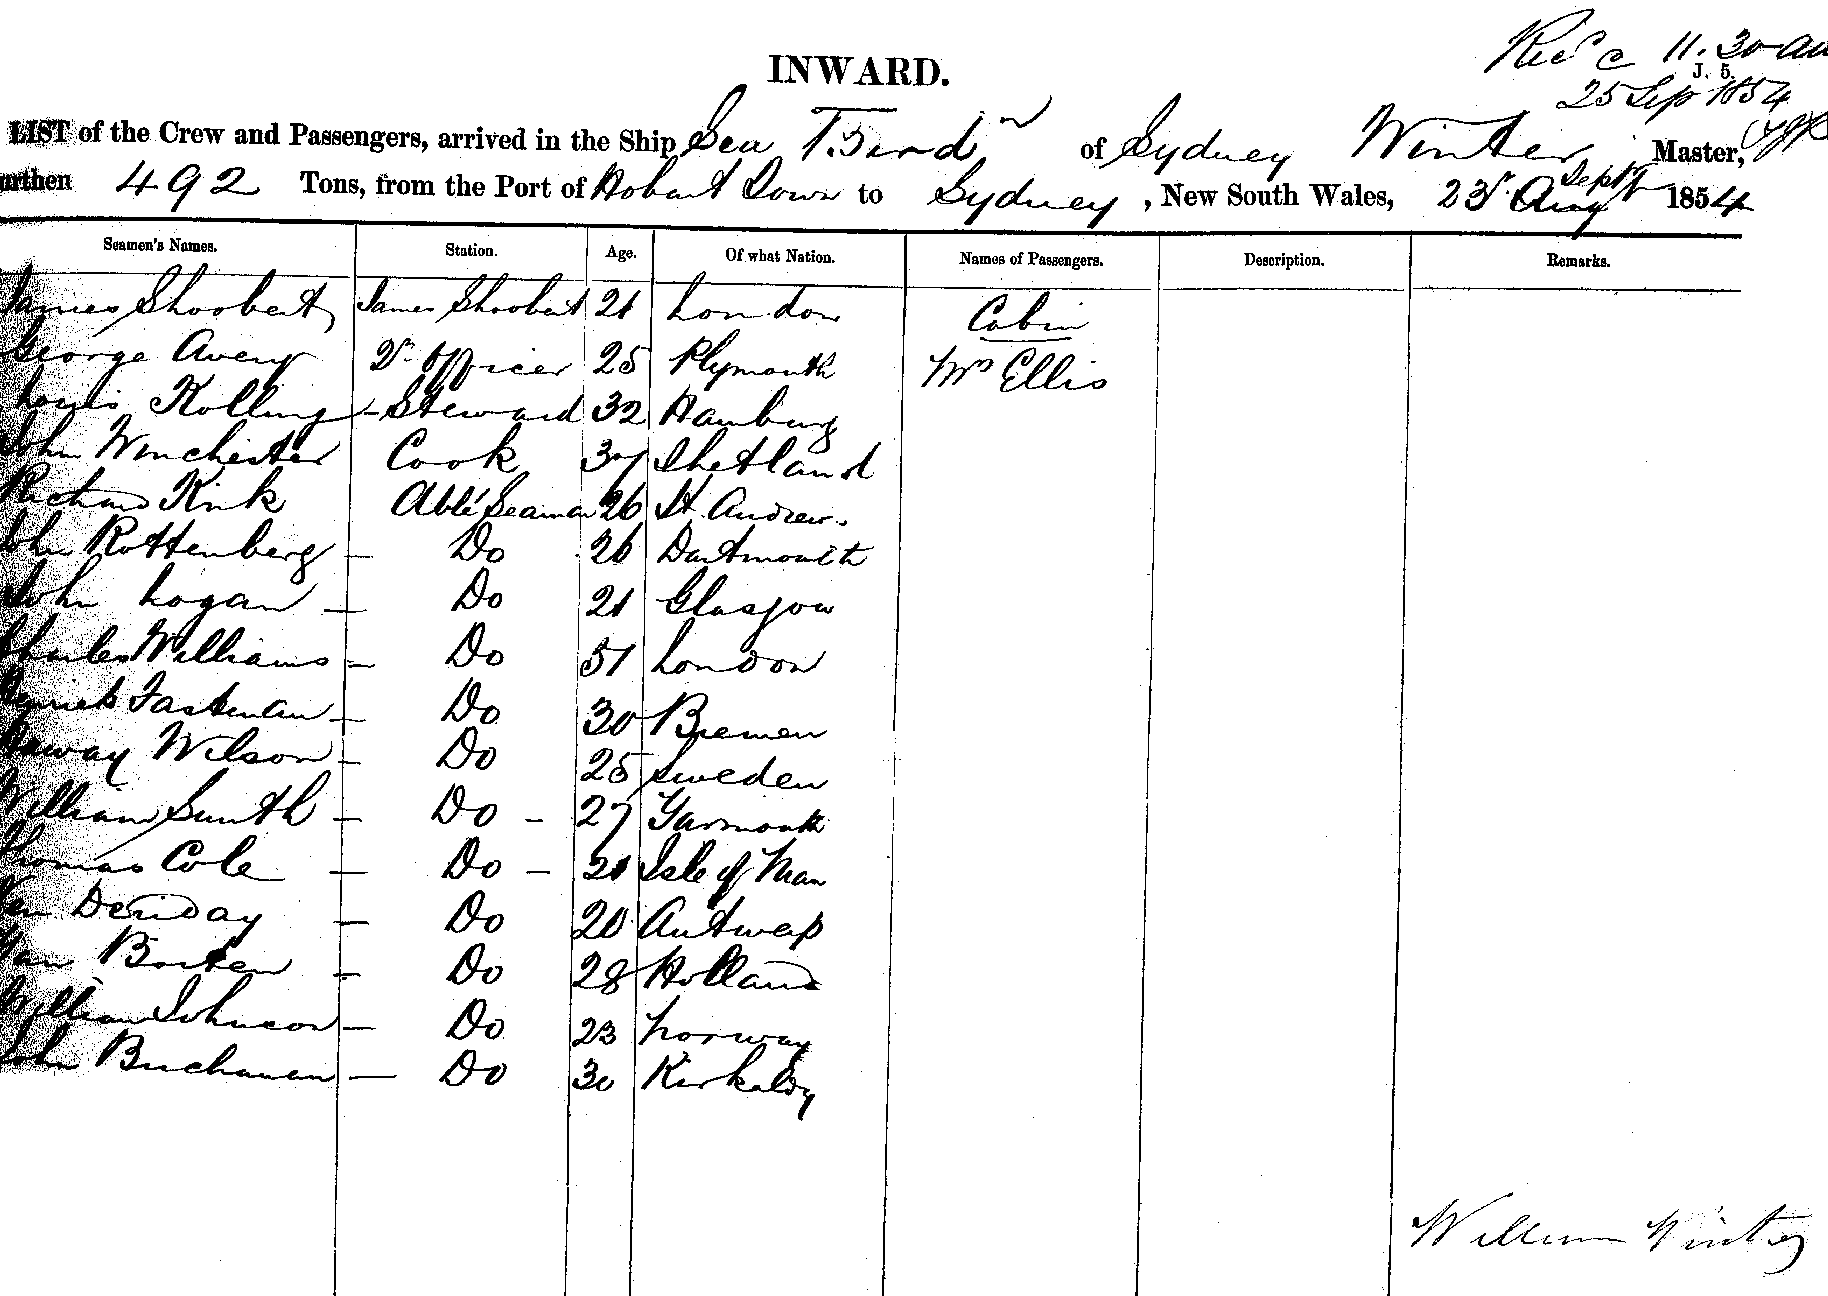 Recd 11.30 am
J. 5.
25 Sep 1854
INWARD.
LIST of the Crew and Passengers, arrived in the Ship Sea Bird of Sydney Winter Master,
urthen 492 Tons, from the Port of Hobart Town to Sydney, New South Wales, 25 Aug Septr 1854
Seamen's Names. Station. Age. Of what Nation. Names of Passengers. Description. Remarks.
James Shoobert James Shoobert 21 London Cabin
George Avery 2r Officer 25 Plymouth Mrs Ellis
Louis Kolling – Steward 32 Hamburg
John Winchester Cook 37 Shetland
Richard Kirk Able Seaman 26 St Andrews
John Rottenberg – Do 26 Dartmouth
John Logan – Do 21 Glasgow
Charles Williams – Do 51 London
Fastenau – Do 30 Bremen
Wilson – Do 25 Sweden
William Smith – Do – 27 Yarmouth
Thomas Cole – Do – 21 Isle of Man
Deriday – Do 20 Antwerp
Jan Borten – Do 28 Holland
William Johnson – Do 23 Norway
John Buchanan – Do 30 Kirkaldy
William Winter